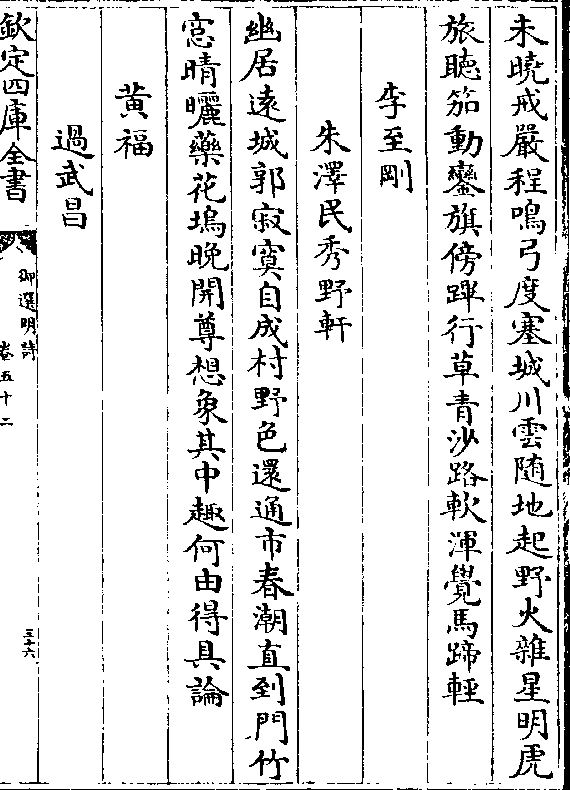 未曉戒嚴程鳴弓度塞城川雲随地起野火雜星明虎
旅聽笳動鑾旗傍蹕行草青沙路軟渾覺馬蹄輕
李至剛
朱澤民秀野軒
幽居遠城郭寂寞自成村野色還通市春潮直到門竹
窓晴曬藥花塢晩開尊想象其中趣何由得具論
黄福
過武昌
欽定四庫全書
御選明詩
卷五十二
三十六